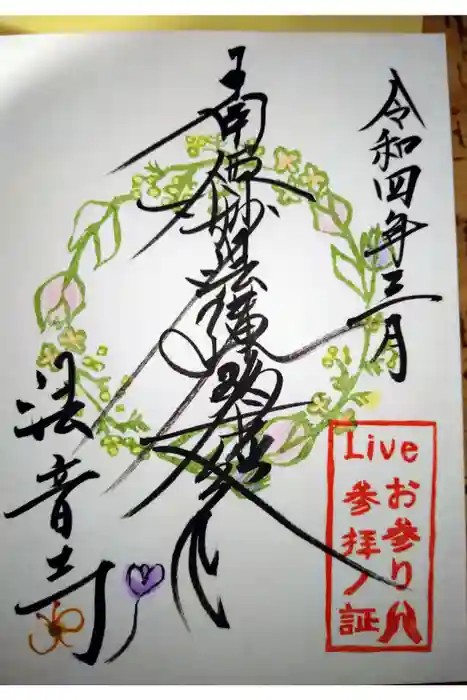 令和四年三月
南無妙法蓮華経
法音寺
Live
お参り
参拝ノ証